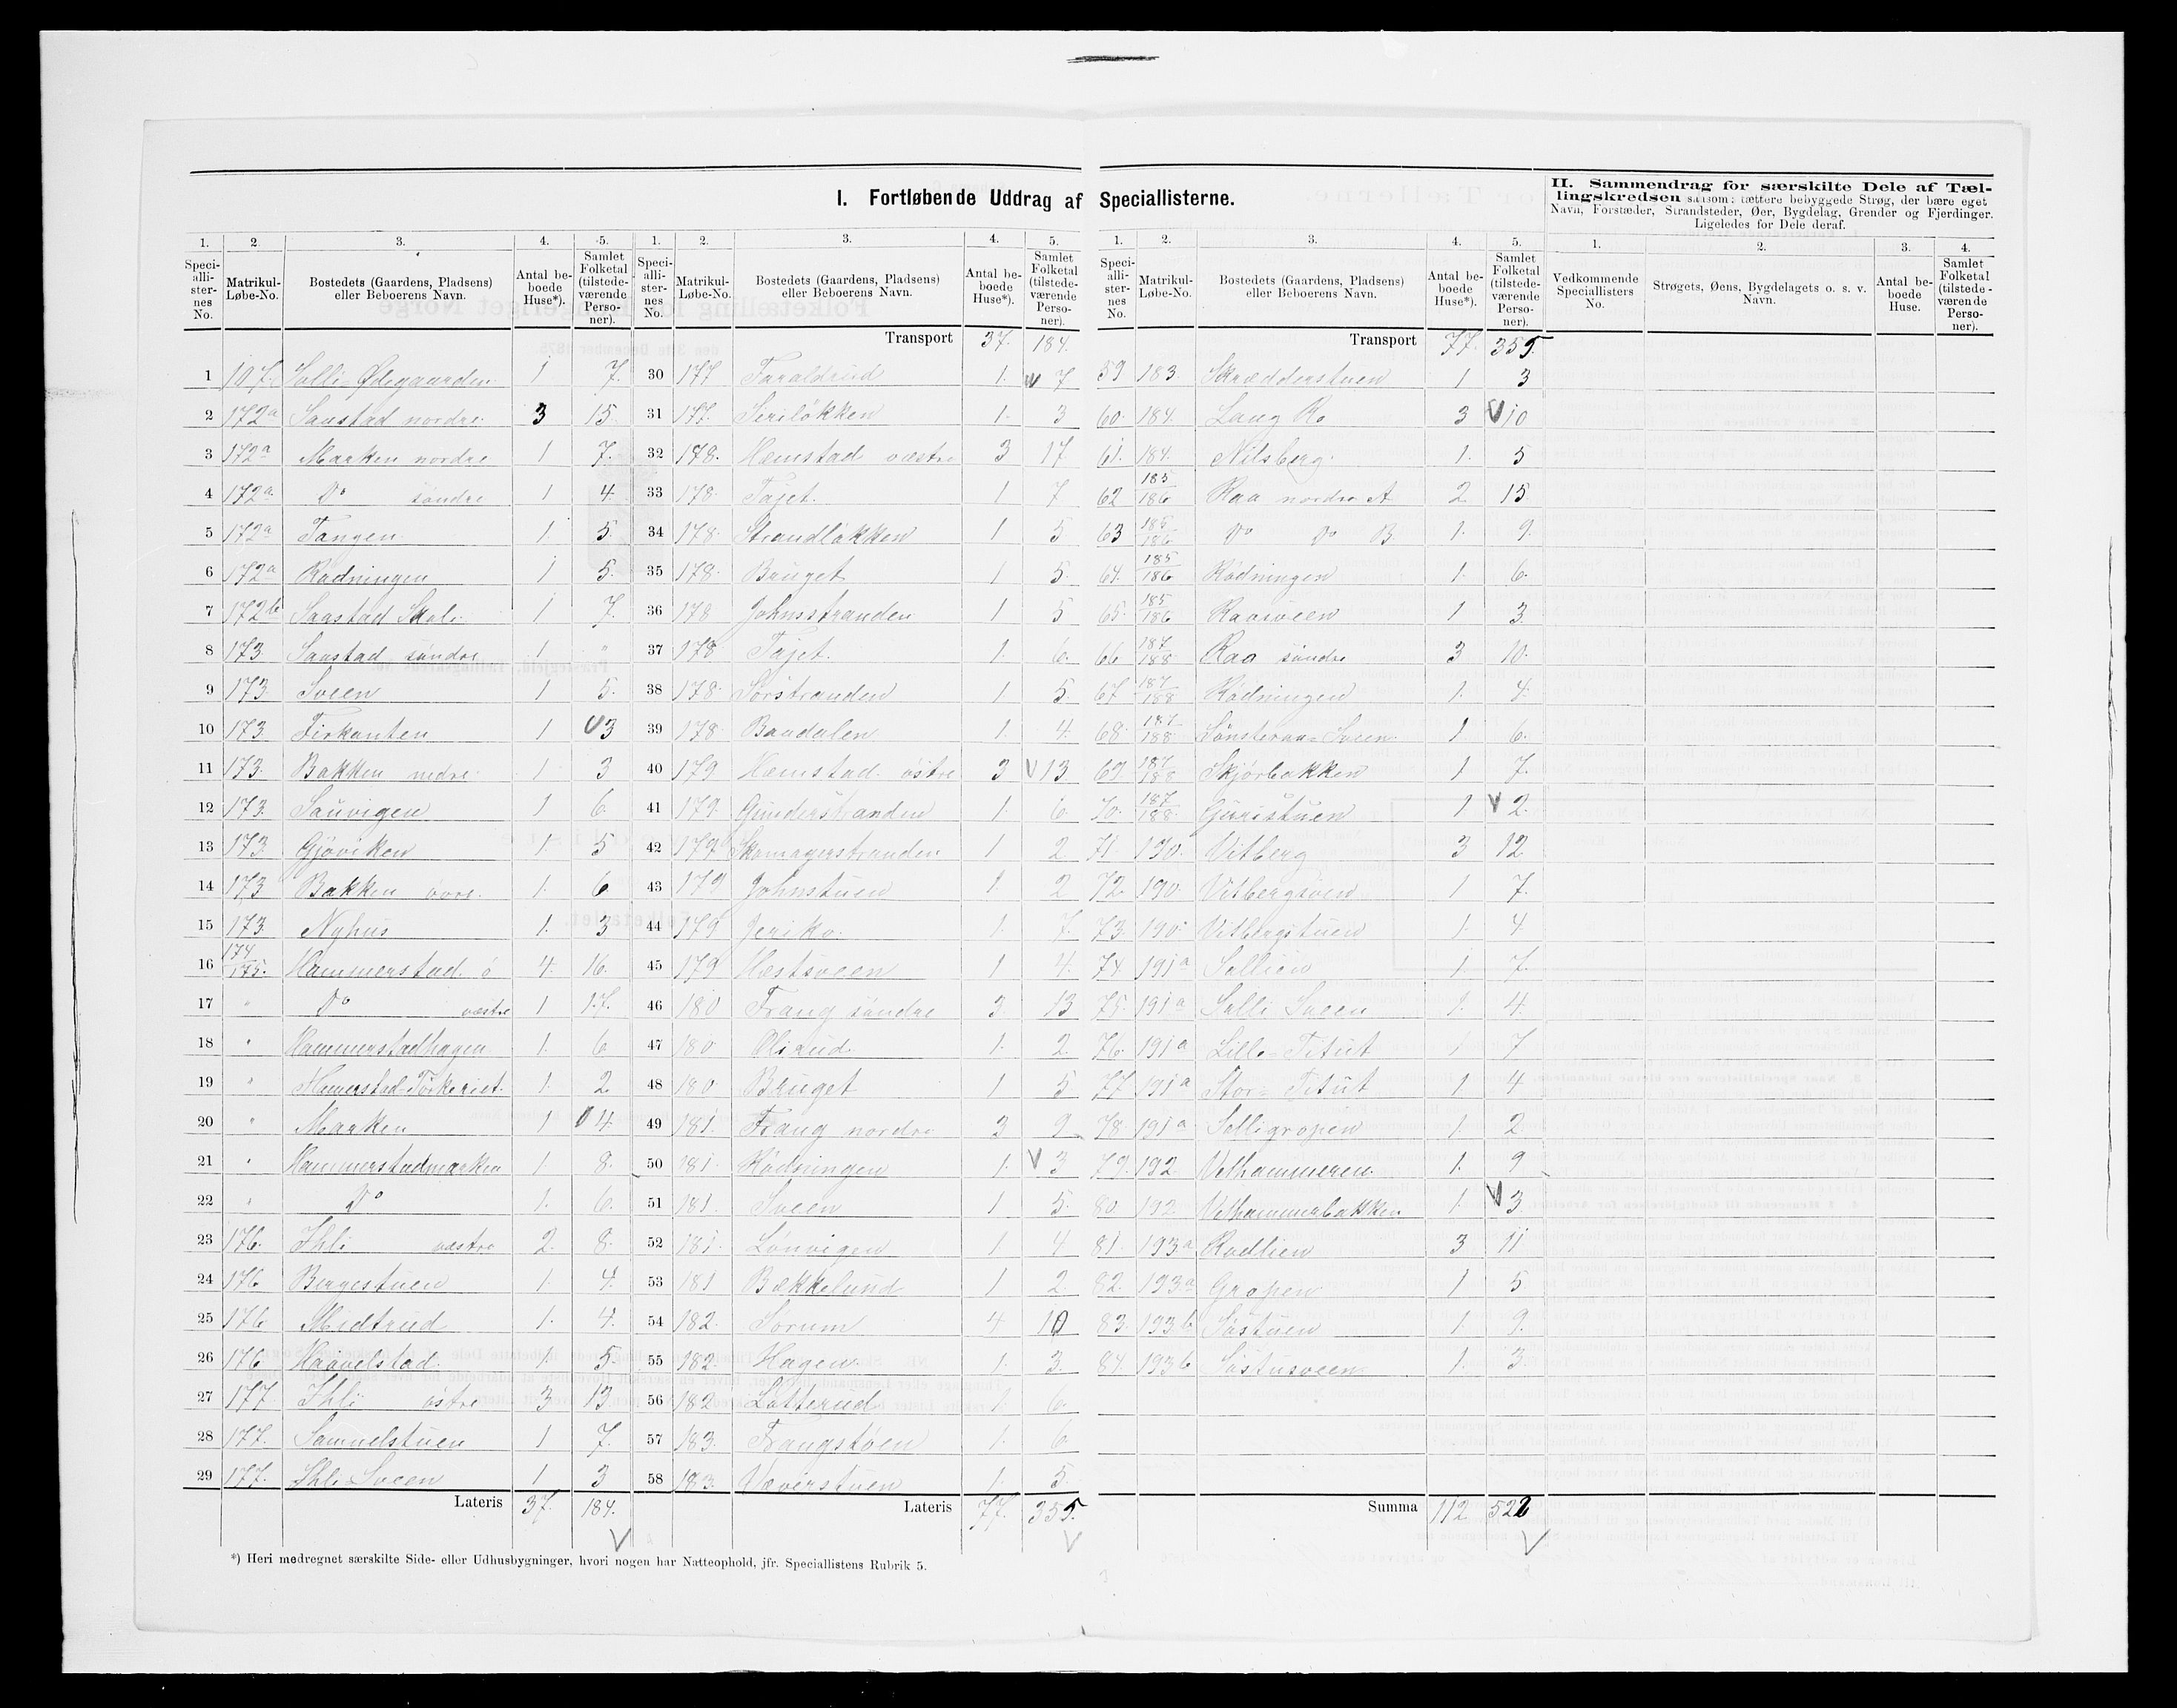 I. Fortløbende Uddrag af Speciallisterne.
II. Sammendrag for særskilte Dele af Tæl-
lingskredsen saasom: tættere bebyggede Strøg, der bære eget
Navn, Forstæder, Strandsteder, Øer, Bygdelag, Grender og Fjerdinger.
Ligeledes for Dele deraf.
1. 2. 3. 4. 5.
Speci-alli-ster-nes No. Matrikul-Løbe-No. Bostedets (Gaardens, Pladsens) eller Beboerens Navn. Antal be-boede Huse*). Samlet Folketal (tilstede-værende Perso-ner).
1 107. Solli-Ødegaarden 1 7.
2 172a Saustad nordre 3 15
3 172a Marken nordre 1 7.
4 172a Do søndre 1 4.
5 172a Tangen 1 5.
6 172a Rødningen 1 5.
7 172b Saastad Skole 1 7.
8 173. Saustad søndre 1 "
9 173 Sveen 1 5.
10 173 Firkanten 1 3
11 173. Bakken nedre 1 3
12 173. Sauvigen 1 6.
13 173 Gjøviken 1 5
14 173 Bakken øvre 1. 6
15 173 Nyhus 1. 3
16 174/175. Hammerstad ø 4. 16.
17 " Do vestre 1 17.
18 " Hammerstadhagen 1. 6
19 " Hamerstad-Tørkeriet 1. 2
20 " Marken 1 4.
21 " Hammerstadmarken 1. 8.
22 " Do 1. 6.
23 176. Ihli vestre 2. 8.
24 176 Bergestuen 1. 4.
25 176 Midtrud 1. 4.
26 176 Haavelstad 1. 5.
27 177 Ihli østre 3 13
28 177. Samuelstuen 1 7.
29 177. Ihli-Sveen 1 3
Lateris 37. 184.
1. 2. 3. 4. 5.
Speci-alli-ster-nes No. Matrikul-Løbe-No. Bostedets (Gaardens, Pladsens) eller Beboerens Navn. Antal be-boede Huse*). Samlet Folketal (tilstede-værende Perso-ner).
Transport 37. 184.
30 177 Taraldrud 1. 7
31 177. Siriløkken 1. 3
32 178. Hemstad vestre 3 17
33 178. Tajet 1 7
34 178. Strandløkken 1 5
35 178. Bruget 1 5.
36 178 Johnsstranden 1 5
37 178 Tajet 1. 6.
38 178. Sørstranden 1 5.
39 178 Baadalen 1. 4.
40 179 Hemstad østre 3 13
41 179. Gunderstranden 1. 6.
42 179 Skomagerstranden 1 2
43 179 Johnstuen 1. 2
44 179 Jeriko 1. 7.
45 179 Hestsveen 1 4.
46 180 Frang søndre 3 13
47 180 Olsrud 1. 2
48 180. Bruget 1 5
49 181. Frang nordre 3 9
50 181. Rødningen 1. 3
51 181. Sveen 1 5.
52 181. Lønvigen 1. 4
53 181 Bækkelund 1 2
54 182. Sorum 4 10
55 182. Hagen 1. 3.
56 182 Løtterud 1 6
57 183. Frangstøen 1. 6
58 183. Væverstuen 1. 5.
Lateris 77. 355.
1. 2. 3. 4. 5.
Speci-alli-ster-nes No. Matrikul-Løbe-No. Bostedets (Gaardens, Pladsens) eller Beboerens Navn. Antal be-boede Huse*). Samlet Folketal (tilstede-værende Perso-ner).
Transport 77. 355.
59 183. Skrædderstuen 1 3
60. 184. Laug Ro 3 10
61. 184. Nilsberg 1. 5
62 185/186 Raa nordre A 2 15
63 185/186 Do Do B 1. 9.
64. 185/186 Rødningen 1. 6.
65. 185/186 Raasveen 1 3.
66 187/188 Raa søndre 3 10.
67 187/188 Rødningen 1. 4.
68. 187/188 Sønsteraa-Sveen 1 6.
69 187/188 Skjørbakken 1 7.
70. 187/188 Guristuen 1 2.
71. 190. Vitberg 3 12
72. 190. Vitbergsveen 1 7.
73. 190. Vitbergstuen 1. 4
74 191a Sollien 1. 7.
75. 191a Solli Sveen 1. 4.
76. 191a Lille-Titut 1 7
77 191a Stor-Titut 1 4
78. 191a Solligropen 1. 2
79. 192 Vethammeren 1. 9
80. 192 Vethammerbakken 1. 3
81. 193a Rødlien 3 11
82. 193a Gropen 1 5
83. 193b Søstuen 1. 9.
84. 193b Søstusveen 1. 3
Summa 112 522
1. 2. 3. 4.
Vedkommende Speciallisters No. Strøgets, Øens, Bygdelagets o. s. v. Navn. Antal be-boede Huse. Samlet Folketal (tilstede-værende Perso-ner).
*) Heri medregnet særskilte Side- eller Udhusbygninger, hvori nogen har Natteophold, jfr. Speciallistens Rubrik 5.